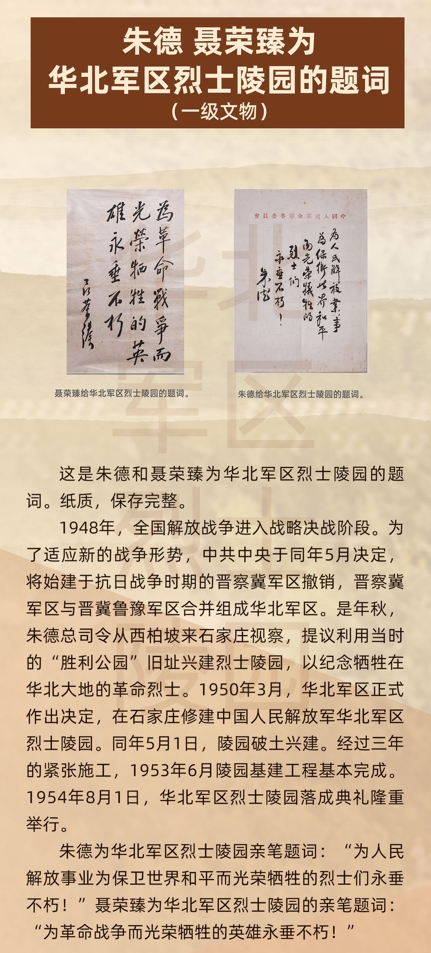 朱德 聂荣臻为
华北军区烈士陵园的题词
（一级文物）
为革命战争而
光荣牺牲的英
雄永垂不朽
聂荣臻
中国人民革命军事委员会
为人民解放事业
为保卫世界和平
而光荣牺牲的
烈士们
永垂不朽！
朱德
聂荣臻给华北军区烈士陵园的题词。
朱德给华北军区烈士陵园的题词。
华北
军区
烈士
陵园
这是朱德和聂荣臻为华北军区烈士陵园的题
词。纸质，保存完整。
1948年，全国解放战争进入战略决战阶段。为
了适应新的战争形势，中共中央于同年5月决定，
将始建于抗日战争时期的晋察冀军区撤销，晋察冀
军区与晋冀鲁豫军区合并组成华北军区。是年秋，
朱德总司令从西柏坡来石家庄视察，提议利用当时
的“胜利公园”旧址兴建烈士陵园，以纪念牺牲在
华北大地的革命烈士。1950年3月，华北军区正式
作出决定，在石家庄修建中国人民解放军华北军区
烈士陵园。同年5月1日，陵园破土兴建。经过三年
的紧张施工，1953年6月陵园基建工程基本完成。
1954年8月1日，华北军区烈士陵园落成典礼隆重
举行。
朱德为华北军区烈士陵园亲笔题词：“为人民
解放事业为保卫世界和平而光荣牺牲的烈士们永垂
不朽！”聂荣臻为华北军区烈士陵园的亲笔题词：
“为革命战争而光荣牺牲的英雄永垂不朽！”